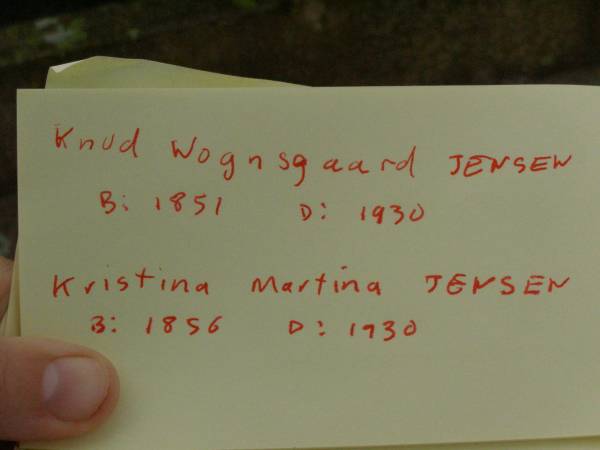 Knud Wognsgaard JENSEN
B: 1851 D: 1930
Kristina Martina JENSEN
B: 1856 D: 1930